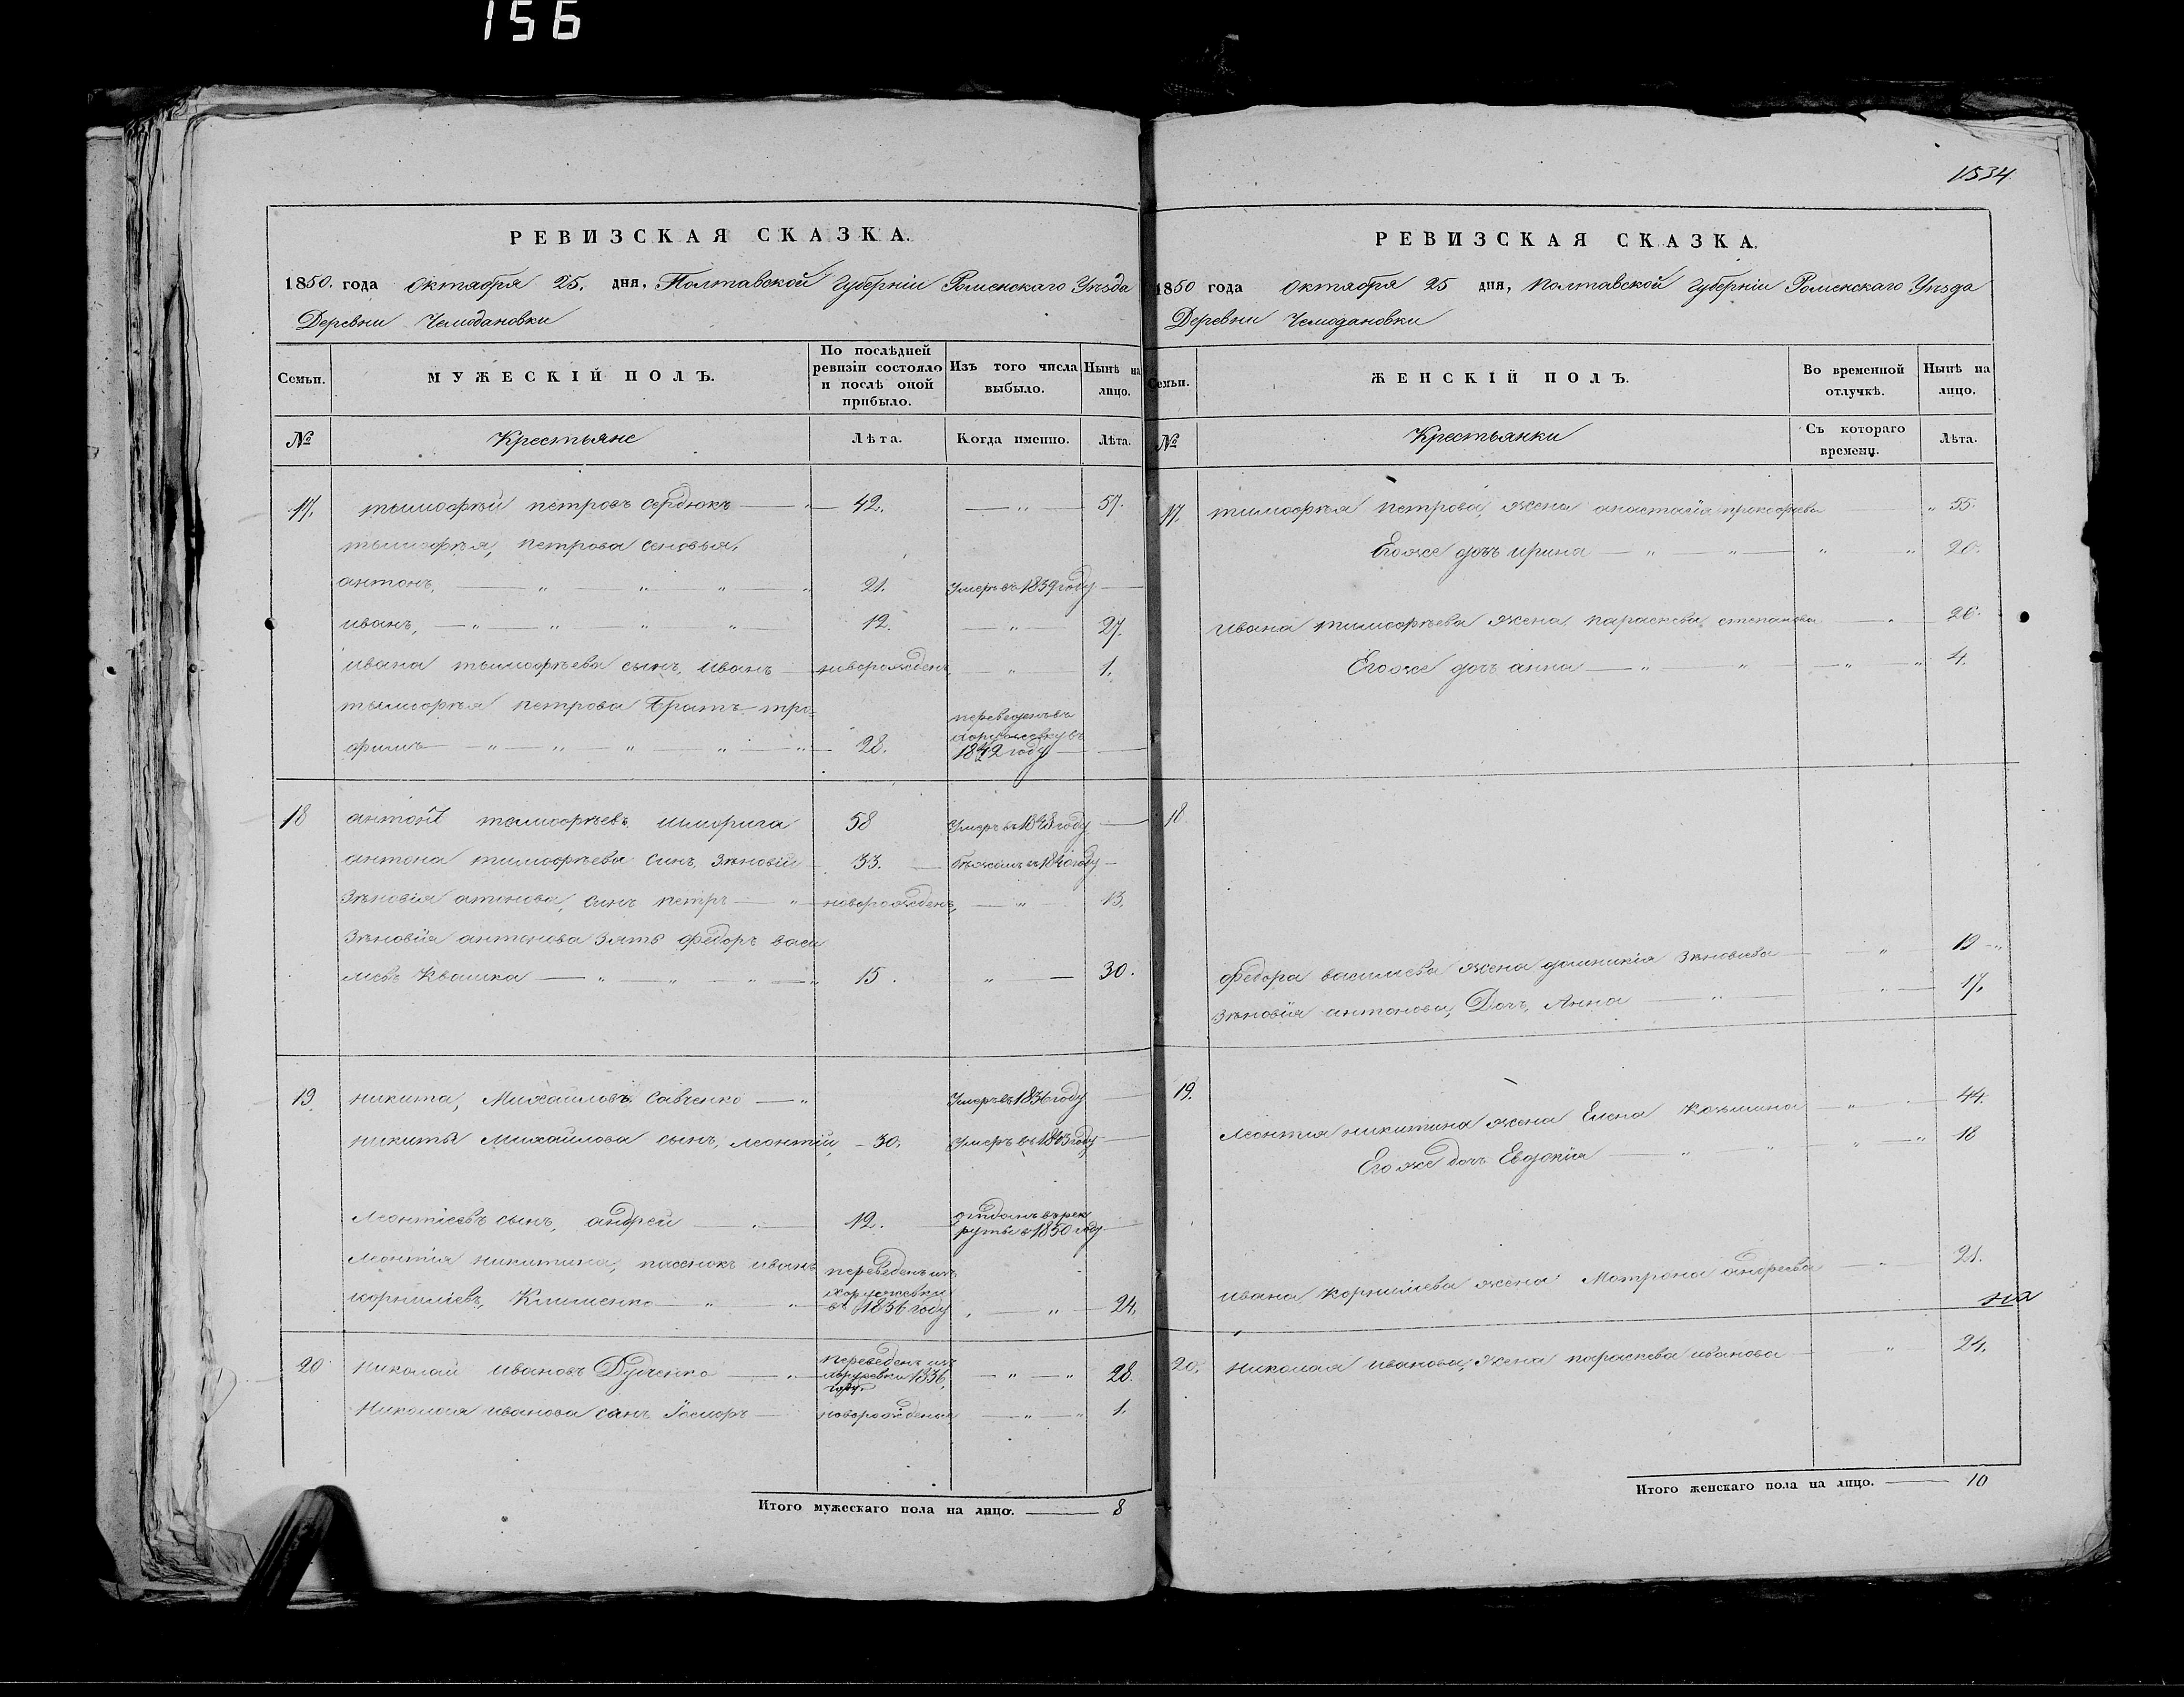 156
1534
РЕВИЗСКАЯ СКАЗКА.
1850. года Октября 25. дня, Полтавской Губерніи Роменскаго Уѣзда
Деревни Чемодановки
Семьи.
МУЖЕСКІЙ ПОЛЪ.
По послѣдней ревизіи состояло и послѣ оной прибыло.
Изъ того числа выбыло.
Нынѣ на лицо.
№ Крестьяне Лѣта. Когда именно. Лѣта.
17. тымофѣй петровъ Сердюкъ 42. 57.
тымофѣя, петрова сеновья,
антонъ, 21. Умеръ въ 1839 году
иванъ, 12. 27.
ивана тымофѣева сынъ, иванъ новорожденъ 1.
тымофѣя петрова братъ тро=
фимъ 28. переведенъ въ Хоружевку въ 1842 году
18 антонъ тимофѣевъ 58 Умеръ въ 1848 году
антона тимофѣева синъ, Зѣновій 33. бѣжалъ въ 1840 году
Зѣновія атонова, синъ петръ новорожденъ, 13.
Зѣновія антонова Зять федоръ васи
лієвъ Квашка 15. 30.
19. никита, Михайловъ Савченко Умеръ въ 1836 году
никиты Михайлова сынъ, леонтій, 30. Умеръ въ 1843 году
леонтіевъ сынъ, андрей 12. отданъ въ рек
руты в 1850 году
леонтія никитина, пасенокъ иванъ переведенъ изъ
корниліевъ, Клименко Хоружевки в 1836 году 24.
20 николай ивановъ Дудченко переведенъ изъ Хоружевки 1836, году. 28.
Николая иванова синъ новорожденъ 1.
Итого мужескаго пола на лицо. 8
РЕВИЗСКАЯ СКАЗКА.
1850 года Октября 25 дня, Полтавской Губерніи Роменскаго Уѣзда
Деревни Чемодановки
Семьи.
ЖЕНСКІЙ ПОЛЪ.
Во временной отлучкѣ.
Нынѣ на лицо.
№ Крестьянки Съ котораго времени. Лѣта.
17. тимофѣя петрова, жена анастасія прокофиева 55.
Его же дочъ ирина 20.
ивана тимофѣева жена параскева степанова 26.
Его же дочъ анна 4.
18.
федора василиева жена домникія Зѣновиева 19
Зѣновія антонова, Дочъ, Анна 17.
19. леонтія никитина жена Елена Козьмина 44.
Его же дочъ Евдокія 18
ивана корниліева жена Мотрона андреева 21.
20. николая иванова, жена параскева иванова 24.
Итого женскаго пола на лицо. 10